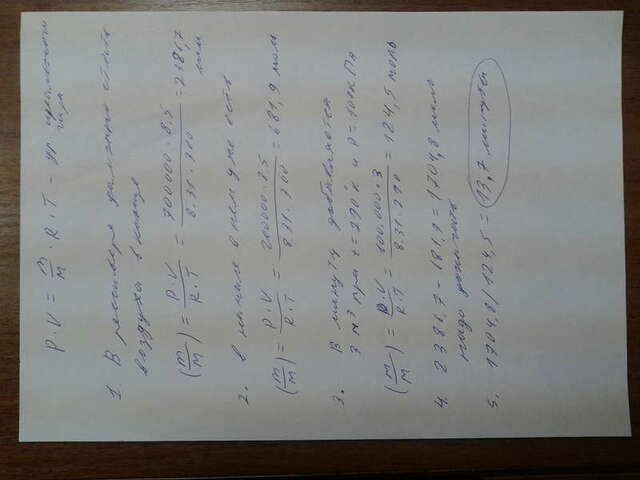 P·V = m/M · R·T - ур. идеального
газа
1 В рессивере должно стать
воздуха в конце
(m/M) = P·V / R·T = 700000·8,5 / 8.31·300 = 2381,7
моль
2. в начале в нем уже есть
(m/M) = P·V / R·T = 200000·8,5 / 8.31·300 = 681,9 моль
3. В минуту добавляется
3 м³ при t=290k и P=100кПа
(m/M) = P·V / R·T = 100.000·3 / 8.31·290 = 124,5 моль
4. 2381,7 - 181,9 = 1704,8 моль
надо докачать
5. 1704,8/124,5 = 13,7 минуты